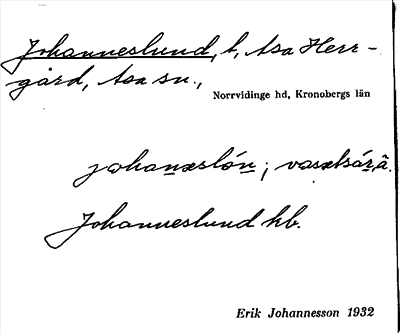 Johanneslund, t, Asa Herr-
gård, Asa sn.,
Norrvidinge hd, Kronobergs län
johanəslón;
Johanneslund kb.
Erik Johannesson 1932